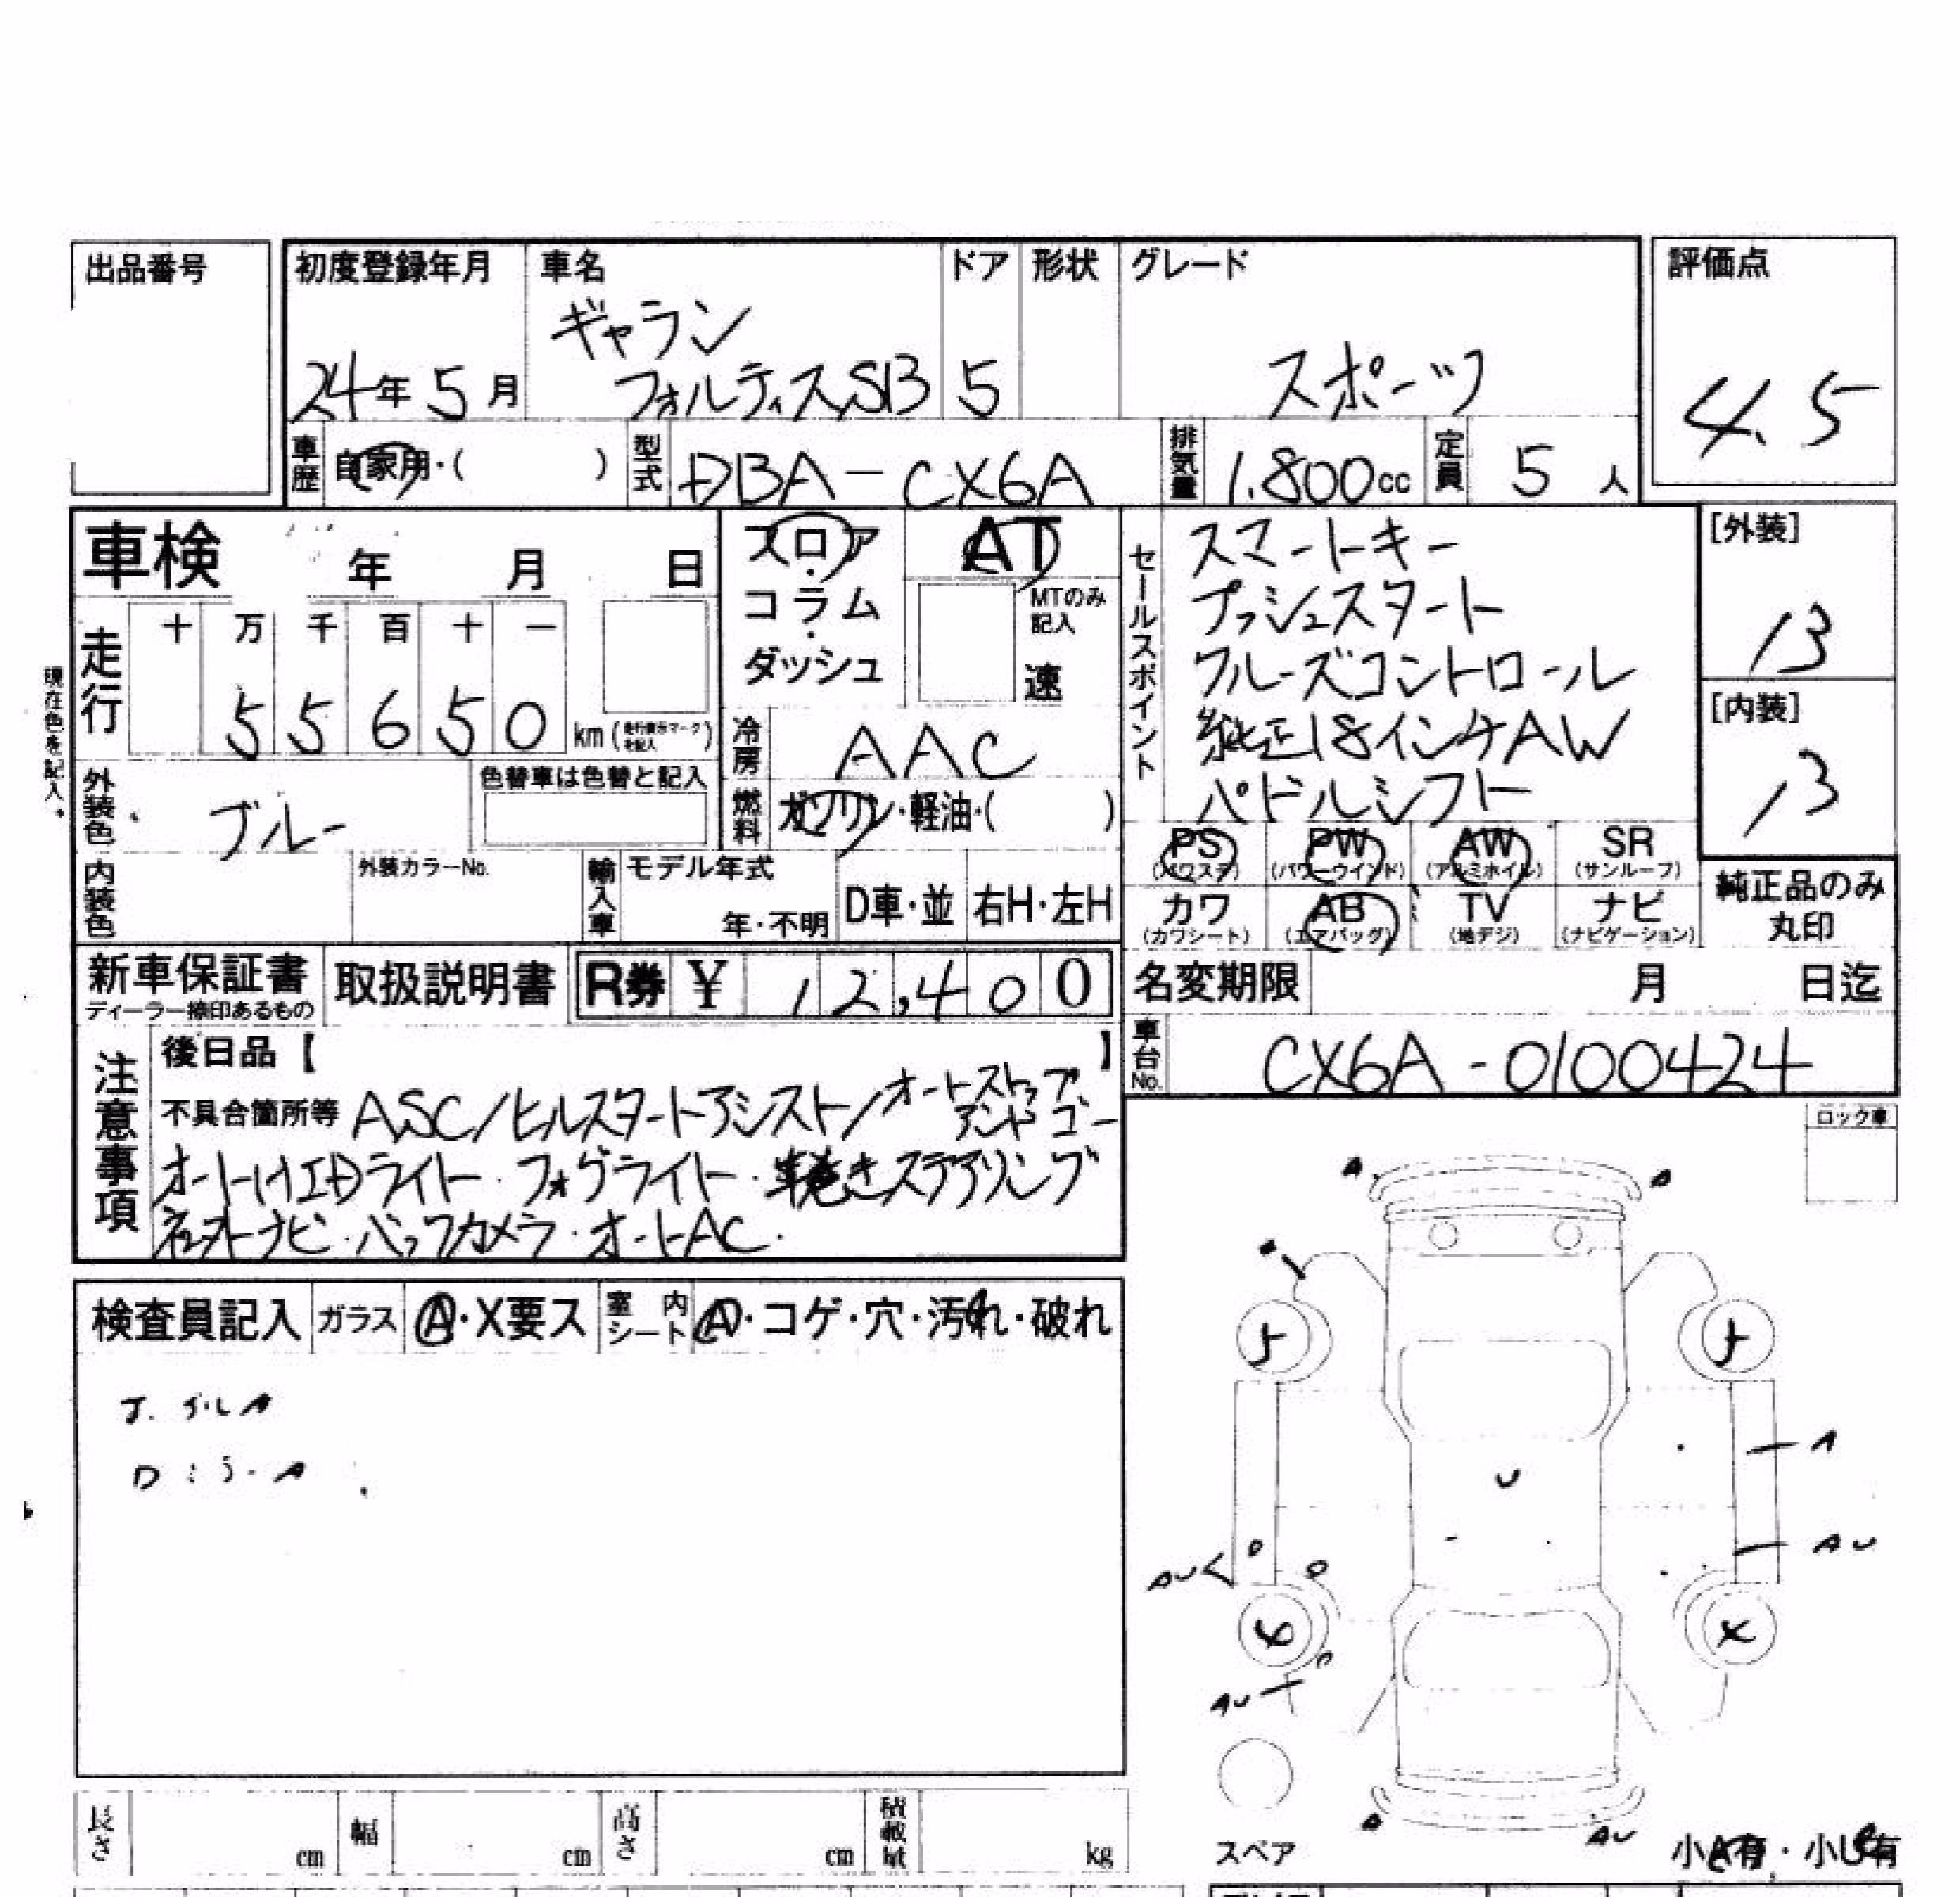 出品番号
初度登録年月
24年5月
車名
ギャラン
フォルティスSB
ドア
5
形状
グレード
スポーツ
評価点
4.5
車歴
自家用・( )
型式
DBA-CX6A
排気量
1.800cc
定員
5人
車検 年 月 日
フロア・コラム・ダッシュ
AT
MTのみ記入
速
セールスポイント
スマートキー
プッシュスタート
クルーズコントロール
純正18インチAW
パドルシフト
[外装]
13
[内装]
13
現在色を記入。
走行
十 万 千 百 十 一
5 5 6 5 0 km
冷房
AAC
外装色
ブルー
色替車は色替と記入
燃料
ガソリン・軽油・( )
PS
(パワステ)
PW
(パワーウインド)
AW
(アルミホイル)
SR
(サンルーフ)
カワ
(カワシート)
AB
(エアバッグ)
TV
(地デジ)
ナビ
(ナビゲーション)
純正品のみ
丸印
内装色
外装カラーNo.
輸入車
モデル年式
年・不明
D車・並
右H・左H
新車保証書
ディーラー捺印あるもの
取扱説明書
R券 ¥ 12,400
名変期限 月 日迄
車台No.
CX6A-0100424
注意事項
後日品【 】
不具合箇所等 ASC/ヒルスタートアシスト/オートストップアンドゴー
オートHIDライト・フォグライト・革巻きステアリング
社外ナビ・バックカメラ・オートAC.
ロック車
検査員記入
ガラス
A・X要ス
室内シート
A・コゲ・穴・汚れ・破れ
A
A
A
AU
U
AU
AU
A
AU
スペア
小A有・小U有
長さ cm
幅 cm
高さ cm
積載量 kg